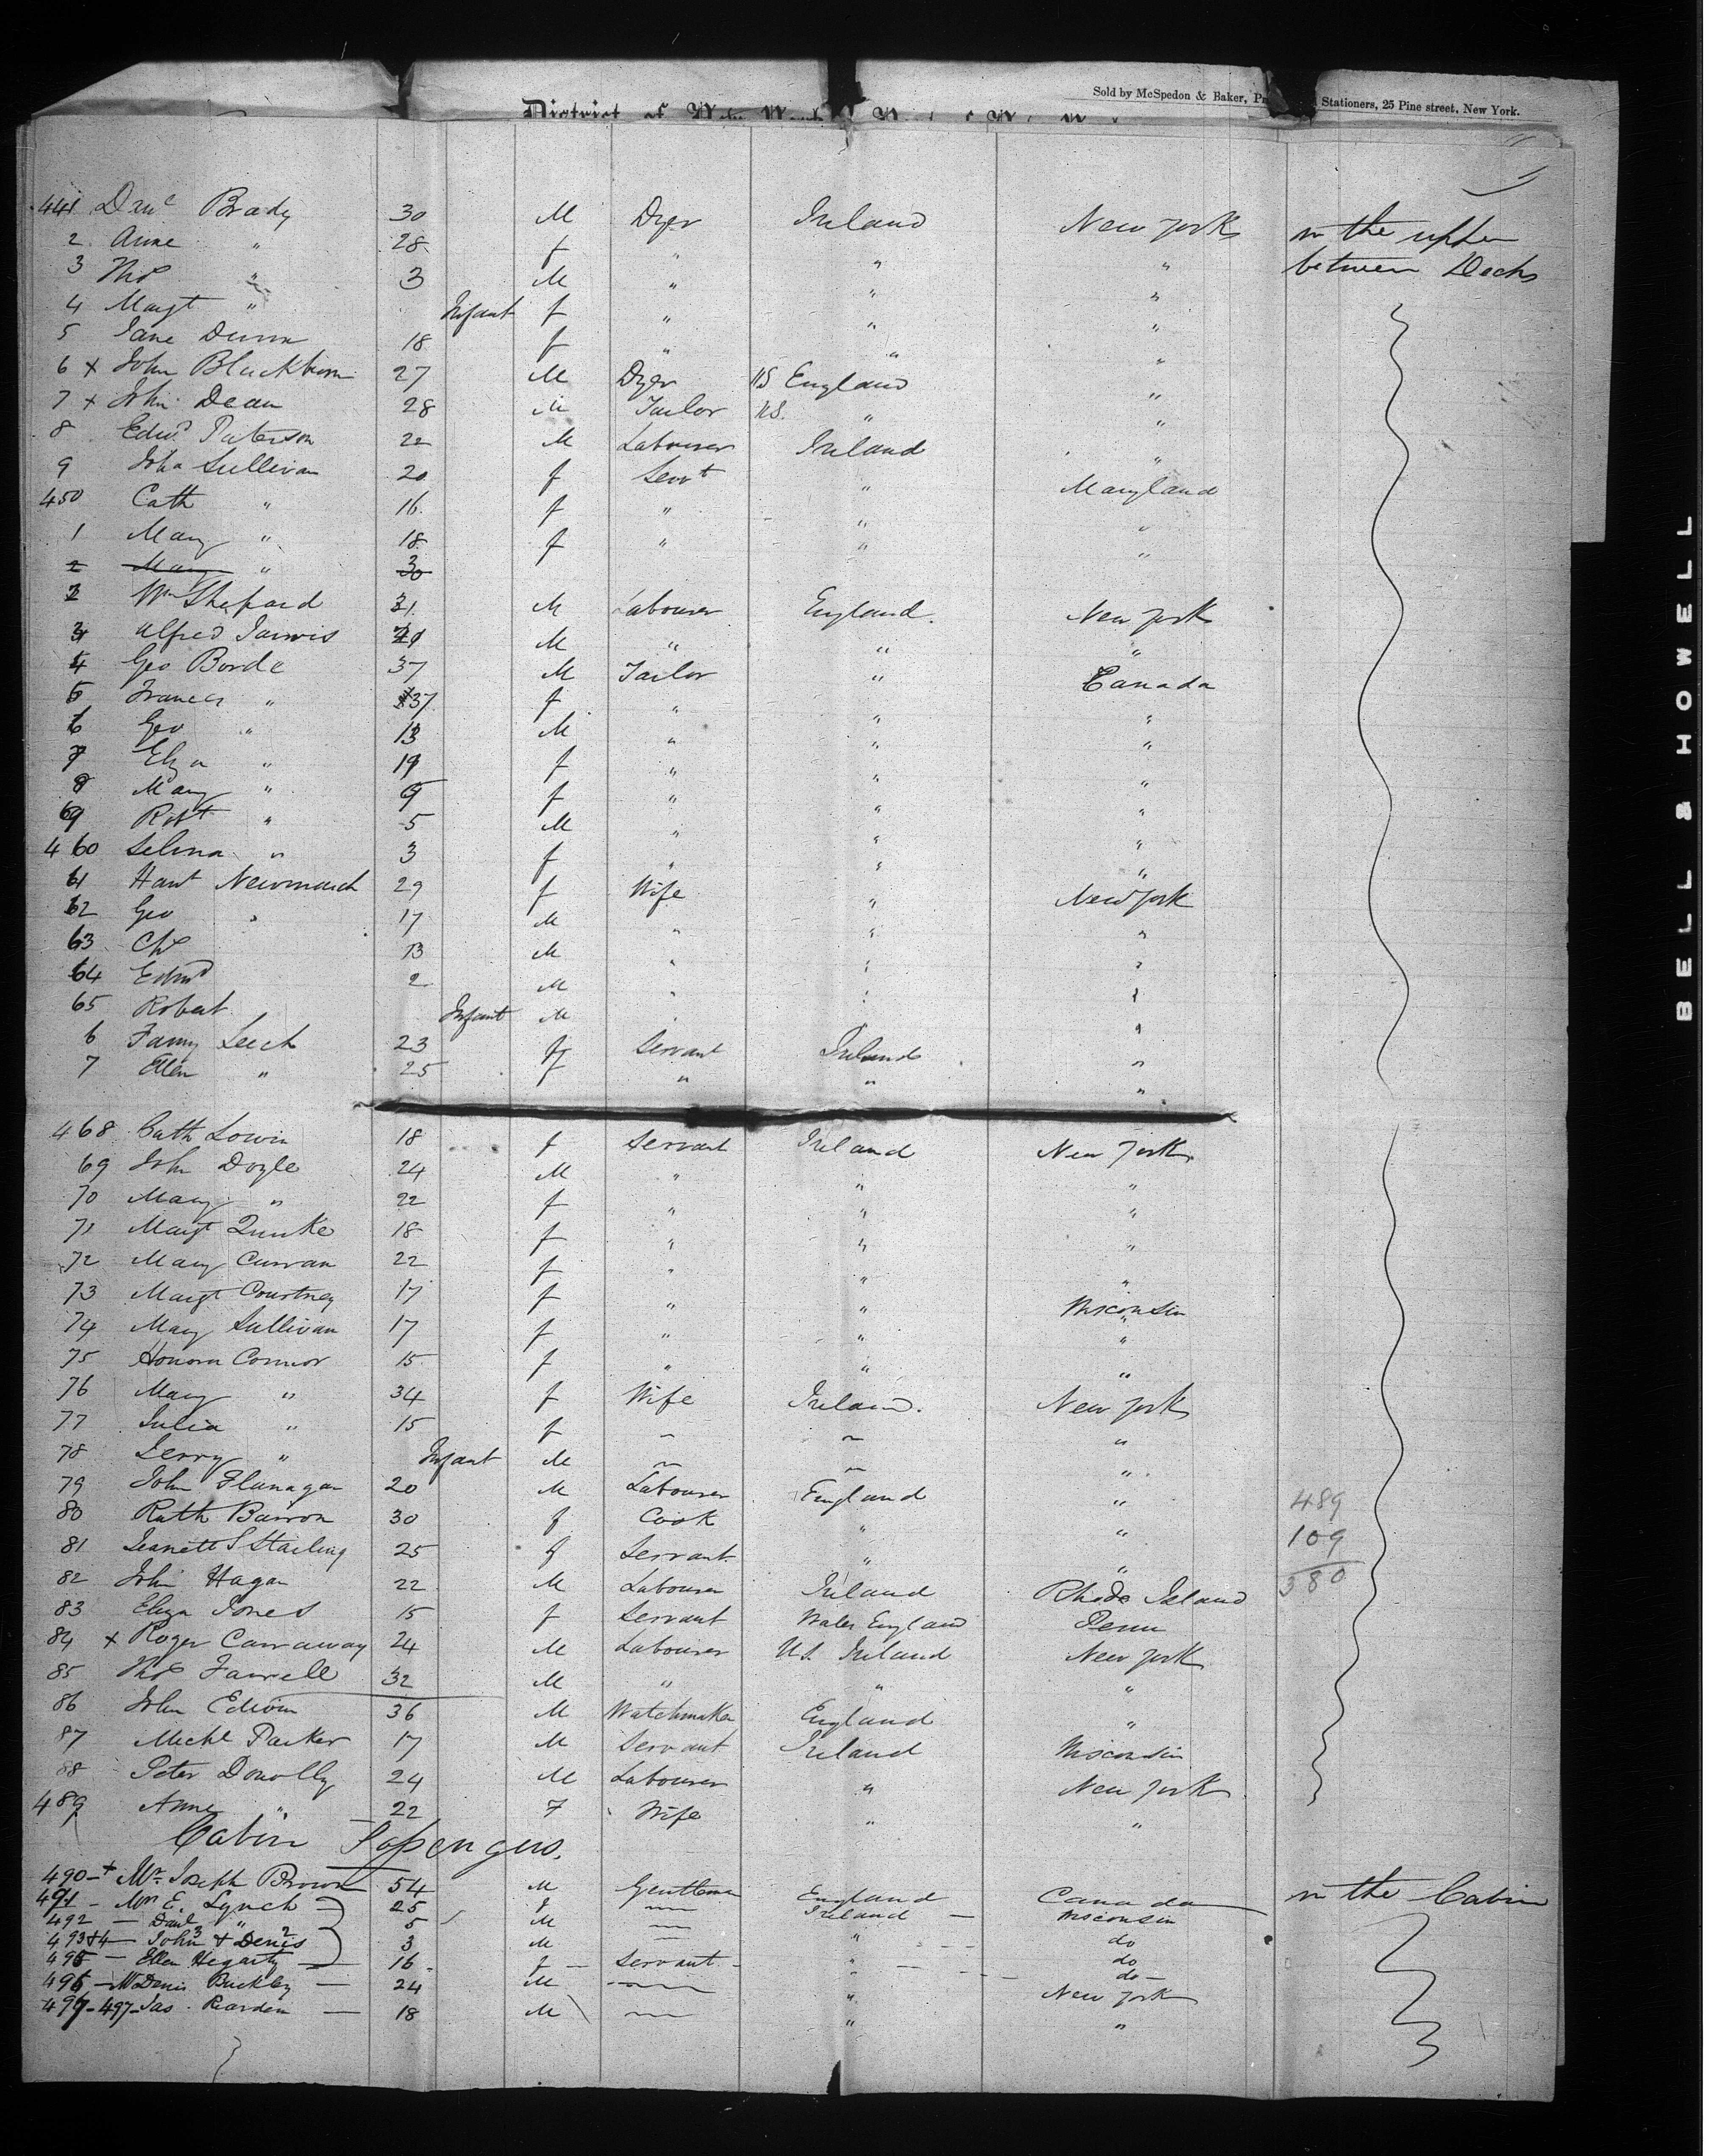 Sold by McSpedon & Baker, Stationers, 25 Pine street, New York.
District of
441 Brady 30 M Dyer Ireland New York in the upper
2 Anne " 28 f " " " between Decks
3 Thos " 3 M " " "
4 Margt " Infant f " " "
5 Jane Dunn 18 f " " "
6 x John Blackburn 27 M Dyer US England "
7 x John Dean 28 M Tailor US. " "
8 Edwd Paterson 22 M Labourer Ireland "
9 Joha Sullivan 20 f Servt " Maryland
450 Cath " 16 f " " "
1 Mary " 18 f " " "
2 Mary " 30
2 Wm Shepard 31 M Labourer England. New York
3 Alfred Jarvis M " " "
4 Geo Borde 37 M Tailor " Canada
5 Frances " 37 f " " "
6 Geo " 13 M " " "
7 Eliza " 11 f " " "
8 Mary " 9 f " " "
9 Robt " 5 M " " "
460 Selina " 3 f " " "
61 Hant Newmarch 29 f Wife " New York
62 Geo " 17 M " " "
63 Chs 13 M " " "
64 Edmd 2 M " " "
65 Robert Infant M " " "
6 Fanny Leech 23 f Servant Ireland "
7 Ellen " 25 f " " "
468 Cath Lowin 18 f Servant Ireland New York
69 John Doyle 24 M " " "
70 Mary " 22 f " " "
71 Margt Quirke 18 f " " "
72 Mary Curran 22 f " " "
73 Margt Courtney 17 f " " Wisconsin
74 Mary Sullivan 17 f " " "
75 Honora Connor 15 f " " "
76 Mary " 34 f Wife Ireland. New York
77 Julia " 15 f " " "
78 Jerry " Infant M " " "
79 John Flanagan 20 M Labourer England "
80 Ruth Barron 30 f Cook " " 489
81 Jeanett S Starling 25 f Servant " " 109
82 John Hagan 22 M Labourer Ireland Rhode Island 380
83 Eliza Jones 15 f Servant Wales England Penn
84 x Roger Carraway 24 M Labourer US. Ireland New York
85 Thos Farrell 32 M " " "
86 John Edwin 36 M Watchmaker England "
87 Michl Parker 17 M Servant Ireland Wisconsin
88 Peter Donolly 24 M Labourer " New York
489 Anne " 22 F Wife " "
Cabin Passengers.
490 - + Mr. Joseph Brown 54 M Gentleman England Canada in the Cabin
491 - Mrs E. Lynch 25 f Ireland - Wisconsin
492 - Danl " 5 M " do
493+4 - John 3 + Denis 2 3 M " do
495 - Ellen Hegarty 16 f - Servant - " do -
496 - Mr Denis Buckley - 24 M " New York
497 - 497 - Jas. Rearden - 18 M " "
BELL & HOWELL